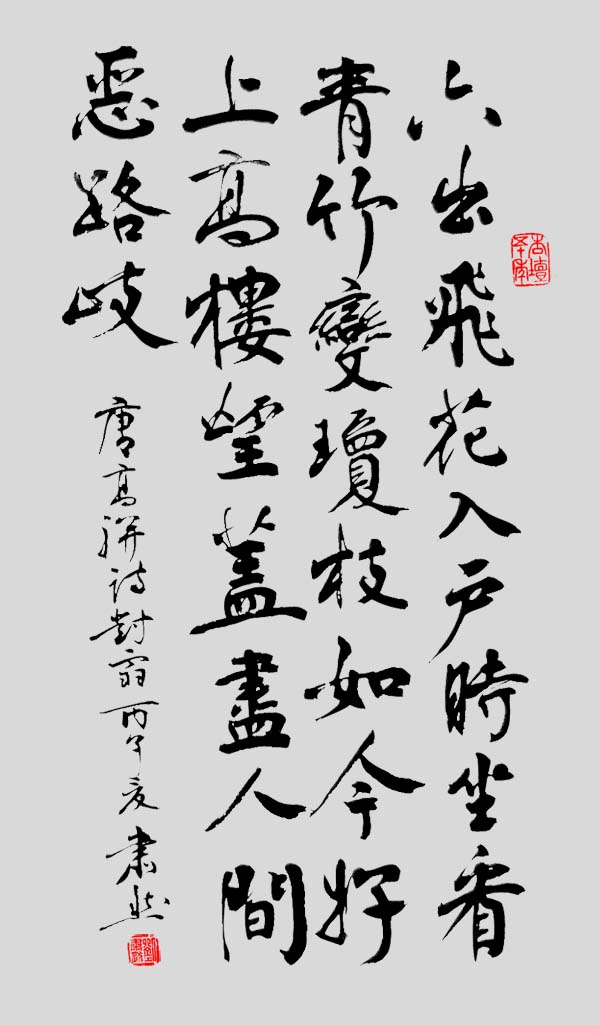 六出飛花入户時坐看
青竹變瓊枝如今好
上高樓望蓋盡人間
惡路歧
唐高駢詩對雪丙午夏肅然